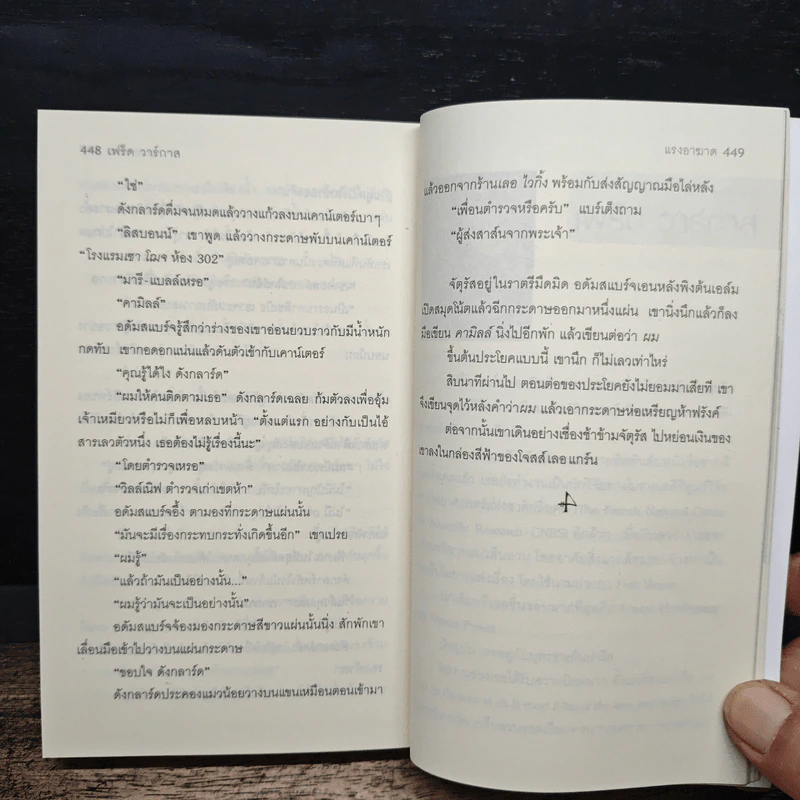 448 เฟร็ด วาร์กาส
“ใช่”
ดังกลาร์ดดื่มจนหมดแล้ววางแก้วลงบนเคาน์เตอร์เบาๆ
“ลิสบอนน์” เขาพูด แล้ววางกระดาษพับบนเคาน์เตอร์
“โรงแรมเซา โฌจ ห้อง 302”
“มารี-แบลล์เหรอ”
“คามิลล์”
อดัมสแบร์จรู้สึกว่าร่างของเขาอ่อนยวบราวกับมีน้ำหนัก
กดทับ เขากอดอกแน่นแล้วดันตัวเข้ากับเคาน์เตอร์
“คุณรู้ได้ไง ดังกลาร์ด”
“ผมให้คนติดตามเธอ” ดังกลาร์ดเฉลย ก้มตัวลงเพื่ออุ้ม
เจ้าเหมียวหรือไม่ก็เพื่อหลบหน้า “ตั้งแต่แรก อย่างกับเป็นไอ้
สารเลวตัวหนึ่ง เธอต้องไม่รู้เรื่องนี้นะ”
“โดยตำรวจเหรอ”
“วิลล์เนิฟ ตำรวจเก่าเขตห้า”
อดัมสแบร์จอึ้ง ตามองที่กระดาษแผ่นนั้น
“มันจะมีเรื่องกระทบกระทั่งเกิดขึ้นอีก” เขาเปรย
“ผมรู้”
“แล้วถ้ามันเป็นอย่างนั้น...”
“ผมรู้ว่ามันจะเป็นอย่างนั้น”
อดัมสแบร์จจ้องมองกระดาษสีขาวแผ่นนั้นนิ่ง สักพักเขา
เลื่อนมือเข้าไปวางบนแผ่นกระดาษ
“ขอบใจ ดังกลาร์ด”
ดังกลาร์ดประคองแมวน้อยวางบนแขนเหมือนตอนเข้ามา
แรงอาฆาต 449
แล้วออกจากร้านเลอ ไวกิ้ง พร้อมกับส่งสัญญาณมือไล่หลัง
“เพื่อนตำรวจหรือครับ” แบร์เต็งถาม
“ผู้ส่งสาส์นจากพระเจ้า”
จัตุรัสอยู่ในราตรีมืดมิด อดัมสแบร์จเอนหลังพิงต้นเอล์ม
เปิดสมุดโน้ตแล้วฉีกกระดาษออกมาหนึ่งแผ่น เขานิ่งนึกแล้วก็ลง
มือเขียน คามิลล์ นิ่งไปอีกพัก แล้วเขียนต่อว่า ผม
ขึ้นต้นประโยคแบบนี้ เขานึก ก็ไม่เลวเท่าไหร่
สิบนาทีผ่านไป ตอนต่อของประโยคยังไม่ยอมมาเสียที เขา
จึงเขียนจุดไว้หลังคำว่าผม แล้วเอากระดาษห่อเหรียญห้าฟรังค์
ต่อจากนั้นเขาเดินอย่างเชื่องช้าข้ามจัตุรัส ไปหย่อนเงินของ
เขาลงในกล่องสีฟ้าของโจสส์ เลอ แกร์น